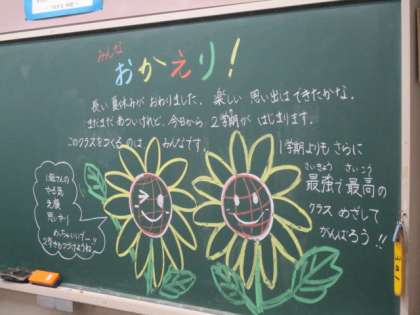 みんな
おかえり!
長い夏休みがおわりました。楽しい思い出はできたかな。
まだまだあついけれど、今日から2学期がはじまります。
このクラスをつくるのは みんなです。
1学期よりもさらに
さいきょう さいこう
最強で最高の
クラス めざして
がんばろう!!
やる気
元気
めっちゃいいぞー!!
2学期もつづけようね